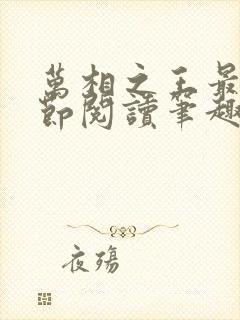 萬相之王最
節閱讀筆趣
夜殤